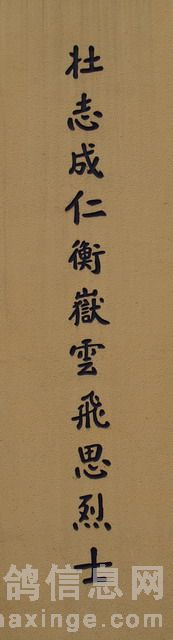 壮志成仁衡嶽雲飛思烈士
鸽信息网
maxinge.com